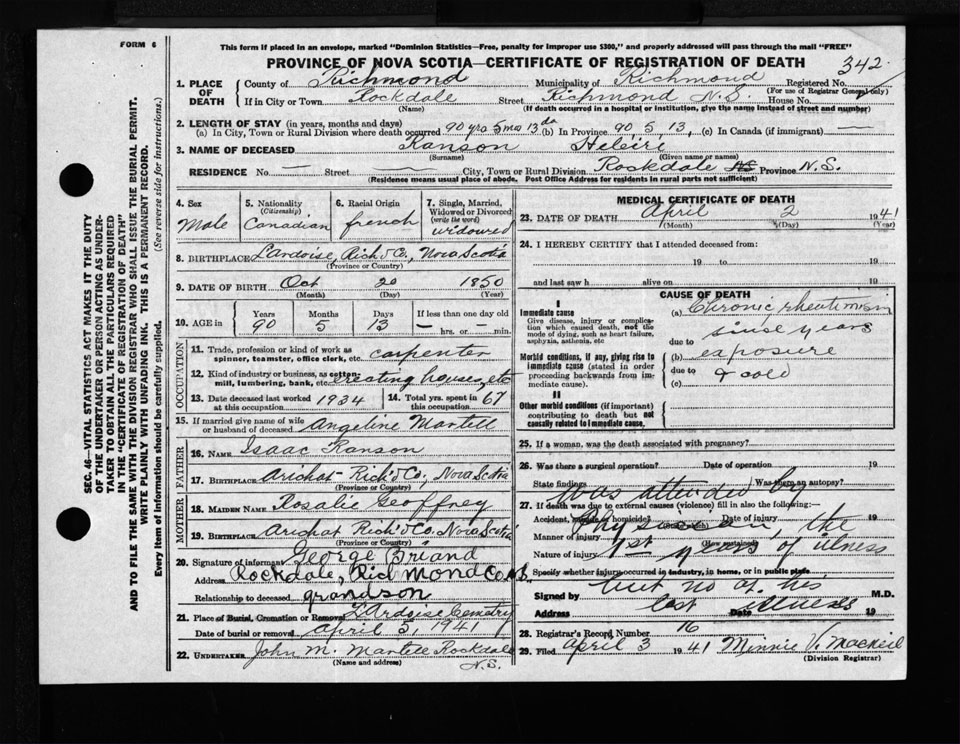 FORM 6
This form if placed in an envelope, marked "Dominion Statistics—Free, penalty for improper use $300," and properly addressed will pass through the mail "FREE"
PROVINCE OF NOVA SCOTIA—CERTIFICATE OF REGISTRATION OF DEATH 342
1. PLACE OF DEATH County of Richmond Municipality of Richmond Registered No.
(For use of Registrar General only)
If in City or Town Rockdale Street Richmond N.S. House No.
(Name) (If death occurred in a hospital or institution, give the name instead of street and number)
2. LENGTH OF STAY (in years, months and days)
(a) In City, Town or Rural Division where death occurred 90 yrs 5 mo 13 da (b) In Province 90 5 13, (c) In Canada (if immigrant) —
3. NAME OF DECEASED Ranson
(Surname) (Given name or names)
RESIDENCE No. — Street — City, Town or Rural Division Rockdale Province N.S.
(Residence means usual place of abode. Post Office Address for residents in rural parts not sufficient)
4. Sex Male
5. Nationality (Citizenship) Canadian
6. Racial Origin french
7. Single, Married, Widowed or Divorced (write the word) widoured
8. BIRTHPLACE Lardoise, Rich'd Co., Nova Scotia
(Province or Country)
9. DATE OF BIRTH Oct 20 1850
(Month) (Day) (Year)
10. AGE in Years Months Days If less than one day old
90 5 13 — hrs. or — min.
OCCUPATION
11. Trade, profession or kind of work as spinner, teamster, office clerk, etc. carpenter
12. Kind of industry or business, as cotton-mill, lumbering, bank, etc. erecting houses, etc
13. Date deceased last worked at this occupation 1934
14. Total yrs. spent in this occupation 67
15. If married give name of wife or husband of deceased Angeline Martell
FATHER
16. NAME Isaac Ranson
17. BIRTHPLACE Arichat Rich'd Co, Nova Scotia
(Province or Country)
MOTHER
18. MAIDEN NAME Rosalie Geoffrey
19. BIRTHPLACE Arichat Rich'd Co Nova Scotia
(Province or Country)
20. Signature of informant George Briand
Address Rockdale, Richmond Co. N.S.
Relationship to deceased grandson
21. Place of Burial, Cremation or Removal L'Ardoise Cemetry
Date of burial or removal April 5, 1941
22. UNDERTAKER John M. Martell Rockdale
(Name and address) N.S.
MEDICAL CERTIFICATE OF DEATH
23. DATE OF DEATH April 2 1941
(Month) (Day) (Year)
24. I HEREBY CERTIFY that I attended deceased from:
19 to 19
and last saw h alive on 19
CAUSE OF DEATH
I
Immediate cause
Give disease, injury or complication which caused death, not the mode of dying, such as heart failure, asphyxia, asthenia, etc
(a) Chronic rheutmism
since years
due to
Morbid conditions, if any, giving rise to immediate cause (stated in order proceeding backwards from immediate cause).
(b) exposure
due to & cold
(c)
II
Other morbid conditions (if important) contributing to death but not causally related to immediate cause.
25. If a woman, was the death associated with pregnancy?
26. Was there a surgical operation? Date of operation 19
State findings Was there an autopsy?
was attended by
27. If death was due to external causes (violence) fill in also the following:—
Accident, suicide or homicide? Date of injury 19
Physician, the
Manner of injury (How sustained)
Nature of injury 1st years of ilness
Specify whether injury occurred in industry, in home, or in public place
but no at his
Signed by M.D.
last illness
Address Date 19
28. Registrar's Record Number 16
29. Filed April 3 1941 Minnie V. MacNeil
(Division Registrar)
SEC. 46—VITAL STATISTICS ACT MAKES IT THE DUTY
OF THE UNDERTAKER OR PERSON ACTING AS UNDER-
TAKER TO OBTAIN ALL THE PARTICULARS REQUIRED
IN THE "CERTIFICATE OF REGISTRATION OF DEATH"
AND TO FILE THE SAME WITH THE DIVISION REGISTRAR WHO SHALL ISSUE THE BURIAL PERMIT.
WRITE PLAINLY WITH UNFADING INK. THIS IS A PERMANENT RECORD.
Every item of information should be carefully supplied. (See reverse side for instructions.)